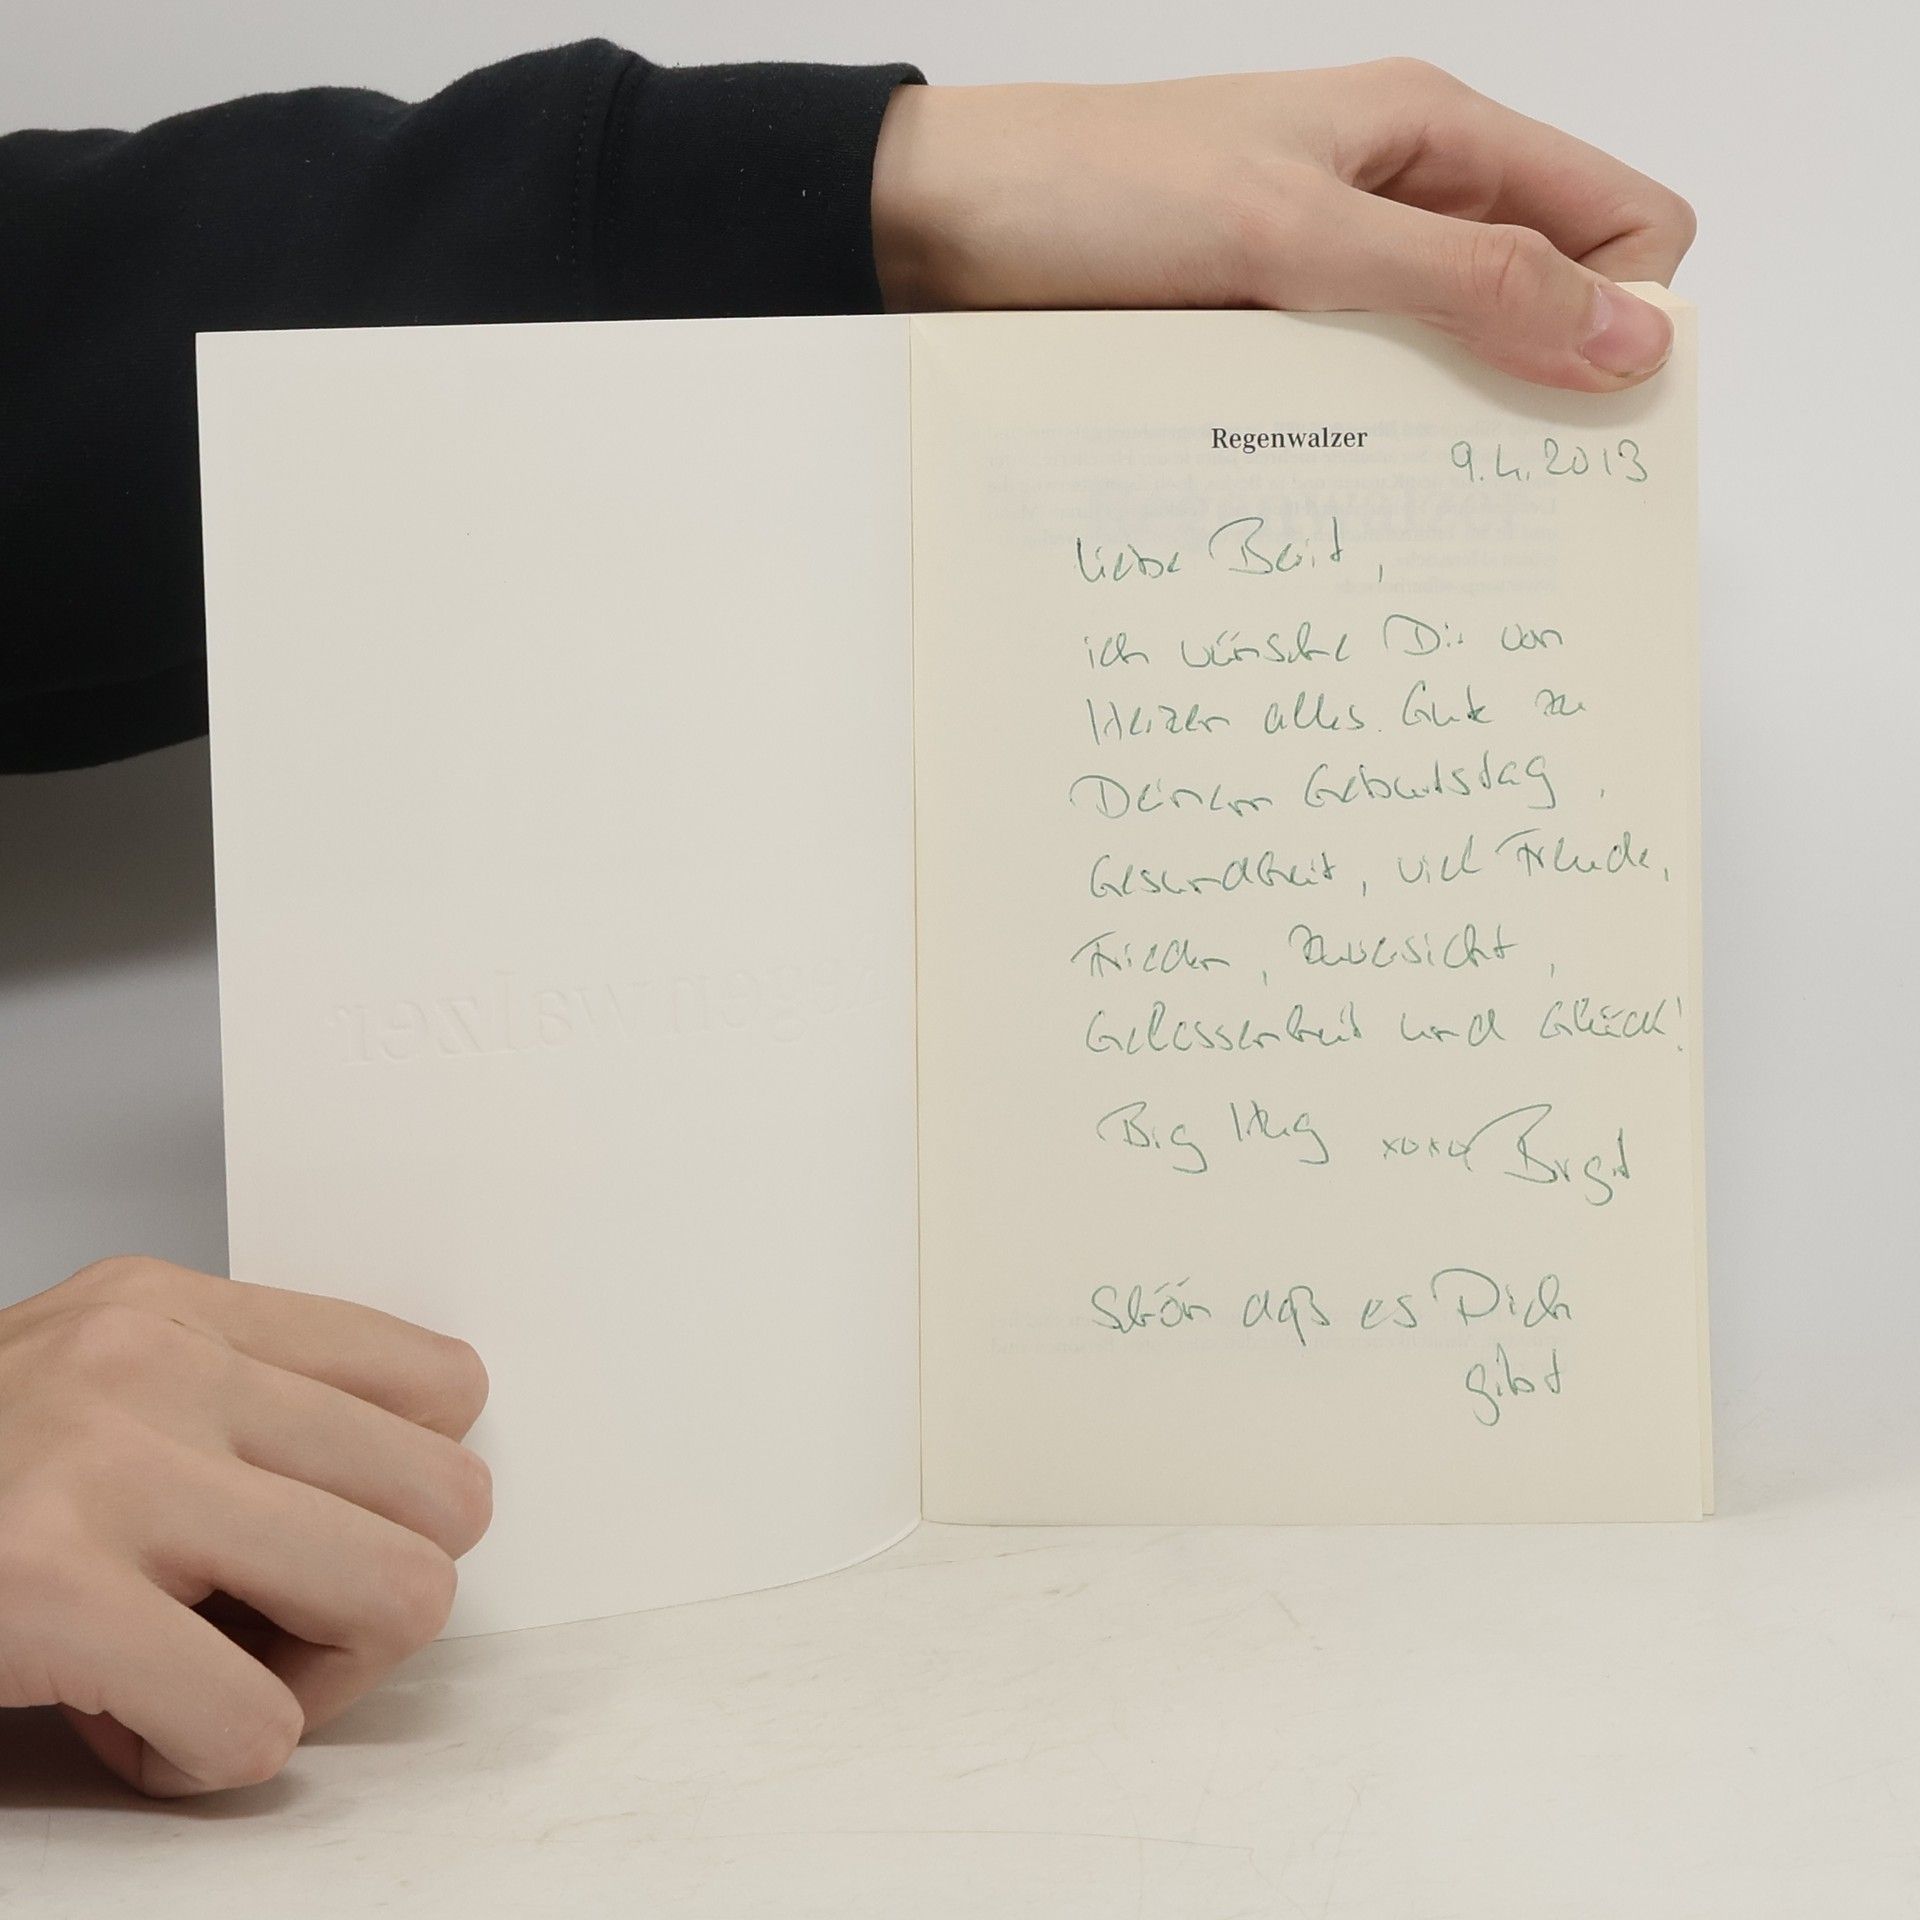 Regenwalzer
9.4.2013
Liebe Berit,
ich wünsche Dir von
Herzen alles Gute zu
Deinem Geburtstag,
Gesundheit, viel Freude,
Frieden, Zuversicht,
Gelassenheit und Glück!
Big Hug xoxo Birgit
Schön daß es Dich
gibt
Regenwalzer